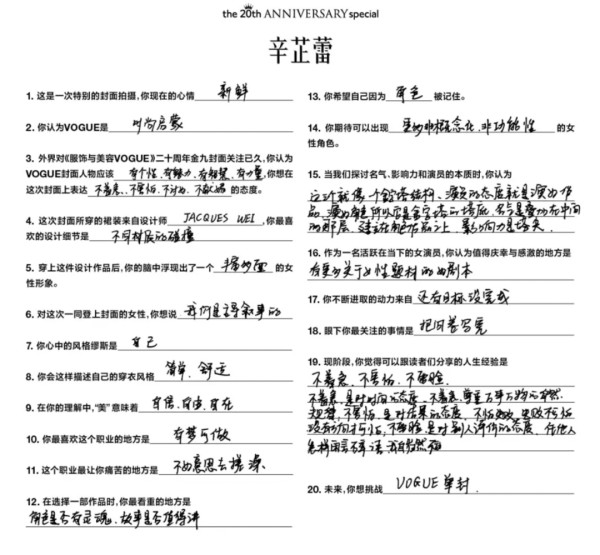 the 20th ANNIVERSARY special
辛芷蕾
1. 这是一次特别的封面拍摄,你现在的心情 新鲜
2. 你认为VOGUE是 时尚启蒙
3. 外界对《服饰与美容VOGUE》二十周年金九封面关注已久,你认为
VOGUE封面人物应该 有个性、有魅力、有期望、有力量,你想在
这次封面上表达 不着急、不害怕、不讨好、不 的态度。
4. 这次封面所穿的裙装来自设计师 JACQUES WEI ,你最喜
欢的设计细节是 不同材质的碰撞
5. 穿上这件设计作品后,你的脑中浮现出了一个 多面 的女
性形象。
6. 对这次一同登上封面的女性,你想说 我们是主导叙事的
7. 你心中的风格缪斯是 自己
8. 你会这样描述自己的穿衣风格 简单、舒适
9. 在你的理解中,“美”意味着 自信、自由、自在
10. 你最喜欢这个职业的地方是 有梦可做
11. 这个职业最让你痛苦的地方是 不如意思去揉澡
12. 在选择一部作品时,你最看重的地方是
角色是否有灵魂、故事是否值得讲
13. 你希望自己因为 角色 被记住。
14. 你期待可以出现 更的非概念化、非功能性 的女
性角色。
15. 当我们探讨名气、影响力和演员的本质时,你认为
这就像一个金字塔结构,演员的态度就是演的作
品、演的角色,所以它是金字塔的塔底,名气是叠加在中间
的部层,建立在角色之上,影响力是塔尖。
16. 作为一名活跃在当下的女演员,你认为值得庆幸与感激的地方是
有更多关于女性题材的的剧本
17. 你不断进取的动力来自 还有目标没完成
18. 眼下你最关注的事情是 把问卷写完
19. 现阶段,你觉得可以跟读者们分享的人生经验是
不着急、不害怕、不要脸。
不着急,是对时间的态度,不着急,尊重万事万物的自然
规律,不害怕,是对结果的态度,不怕失败,失败可怕
没有方向才可怕,不要脸是对别人评价的态度,任他人
怎样 我自岿然不动
20. 未来,你想挑战 VOGUE单封.